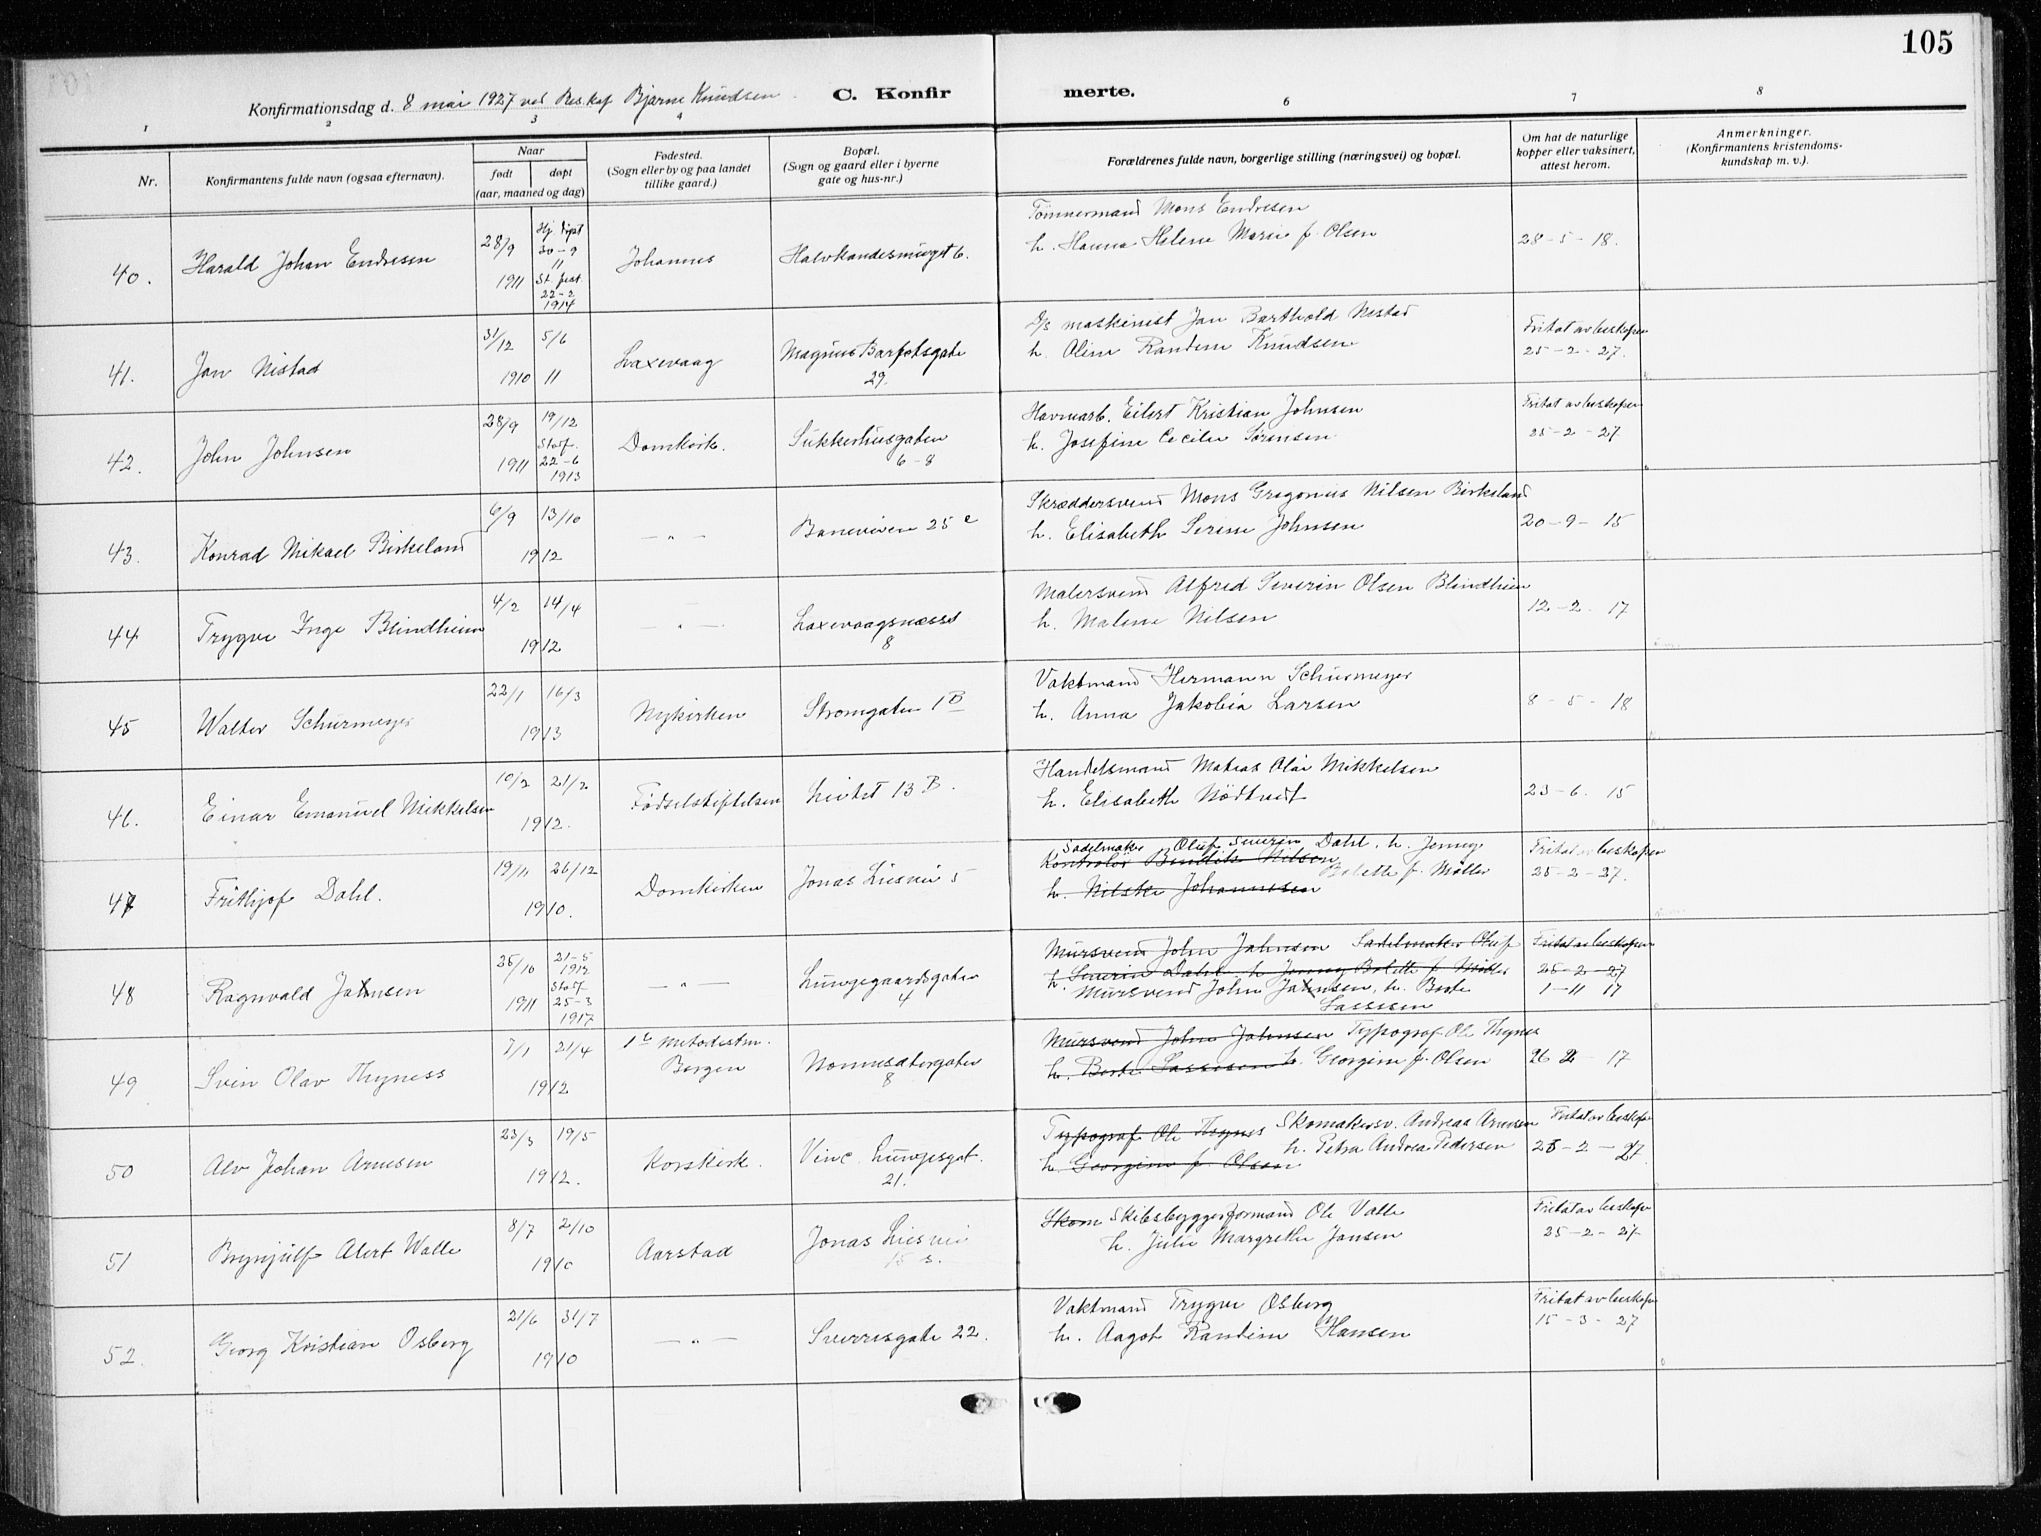 105
Konfirmationsdag d. 8 mai 1927 ved Res. kap Bjarne Knudsen
C. Konfirmerte.
1 2 3 4 6 7 8
Nr.
Konfirmantens fulde navn (ogsaa efternavn).
Naar
født døpt
(aar, maaned og dag)
Fødested.
(Sogn eller by og paa landet
tillike gaard.)
Bopæl.
(Sogn og gaard eller i byerne
gate og hus-nr.)
Forældrenes fulde navn, borgerlige stilling (næringsvei) og bopæl.
Om hat de naturlige
kopper eller vaksinert,
attest herom.
Anmerkninger.
(Konfirmantens kristendoms-
kundskap m. v.).
40. Harald Johan Endresen 28/9 1911 Hj. døpt 30-9 11 St. fest. 22-2 1914 Johannes
Tømmermand Mons Endresen
h. Hanna Helene Marie f. Olsen 28-5-18.
41. Jan Nistad 31/12 1910 5/6 11 Laxevaag Magnus Barfotsgate 29.
D/s maskinist Jan Barthold Nestad
h. Oline Randine Knudsen
Fritat av beskopen 25-2-27.
42. John Johnsen 28/9 1911 19/12 Stadf. 22-6 1913 Domkirk. Sukkerhusgaten 6-8
Havnearb. Eilert Kristian Johnsen
h. Josefine Cecilie Sørensen
Fritat av beskopen 25-2-27
43. Konrad Mikael Birkeland 6/9 13/10 1912 — „ — Baneveien 25 c
Skræddersvend Mons Gregorius Nilsen Birkeland
h. Elisabeth Serine Johnsen 20-9-15
44 Trygve Inge Blindheim 4/2 14/4 1912 — „ — Laxevaagsnesset 8
Malersvend Alfred Severin Olsen Blindheim
h. Malene Nilsen 12-2-17
45 Walter Schürmeyer 22/1 16/3 1913 Nykirken Strømgaten 1 B
Vaktmand Hermann Schürmeyer
h. Anna Jakobia Larsen 8-5-18
46. Einar Emanuel Mikkelsen 10/2 21/2 1912. Fødselstiftelsen 13 B.
Handelsmand Matias Olai Mikkelsen
h. Elisabeth Nødtvedt 23-6-15
47 Frithjof Dahl. 19/11 26/12 1910. Domkirken Jonas Liesvei 5
Sadelmaker Oluf Severin Dahl. h. Jenny
Kontrolør Bendik Nilsen Bolette f. Møller
h. Nilske Johannessen
Fritat av beskopen 25-2-27.
48 Ragnvald Jansen 25/10 1911 21-5 1912 Stadf. 25-3 1917 — „ — Lungegaardsgaten 4
Mursvend John Jahnsen Sadelmaker Oluf
h. Severin Dahl h. Jenny Bolette f. Møller
Mursvend John Jansen, h. Berte
Lassesen
Fritat av beskopen 25-2-27
1-11 17
49 Svein Olav Thyness 7/1 21/4 1912 1te Metodistm. Bergen Nonnesætergaten 8
Mursvend John Jahnsen Typograf Ole Thynes
h. Berte Lassesen h. Georgine f. Olsen 26 2-17
50 Alv Johan Arnesen 23/3 19/5 1912. Korskirk. Vinc. Lungesgat. 21.
Typograf Ole Thynes Skomakersv. Andreas Arnesen
h. Georgine f. Olsen h. Petra Andrea Pedersen
Fritat av beskopen 25-2-27
51 Brynjulf Alert Walle 8/7 2/10 1910 Aarstad Jonas Liesvei 15 3.
Skom Skibsbyggerformand Ole Valle
h. Julie Margrethe Jansen
Fritat av beskopen 25-2-27
52. Georg Kristian Osberg 21/6 31/7 1910 — „ — Sverresgate 22.
Vaktmand Trygve Osberg
h. Aagot Randine Hansen
Fritat av beskopen 15-3-27